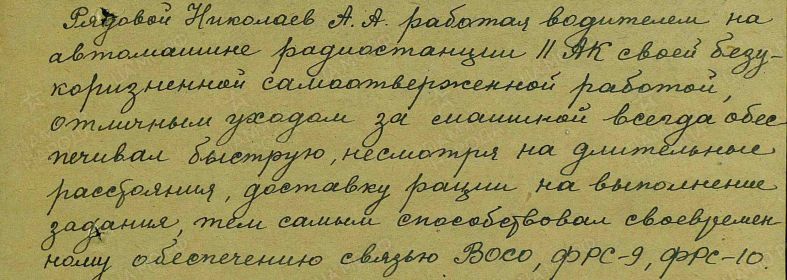 Рядовой Николаев А. А. работая водителем на
автомашине радиостанции II АК своей безу-
коризненной самоотверженной работой,
отличным уходом за смашиной всегда обес
печивал быструю, несмотря на длительные
расстояния, доставку рации на выполнение
задания, тем самым способствовал своевремен-
ному обеспечению связью ВОСО, ФРС-9, ФРС-10